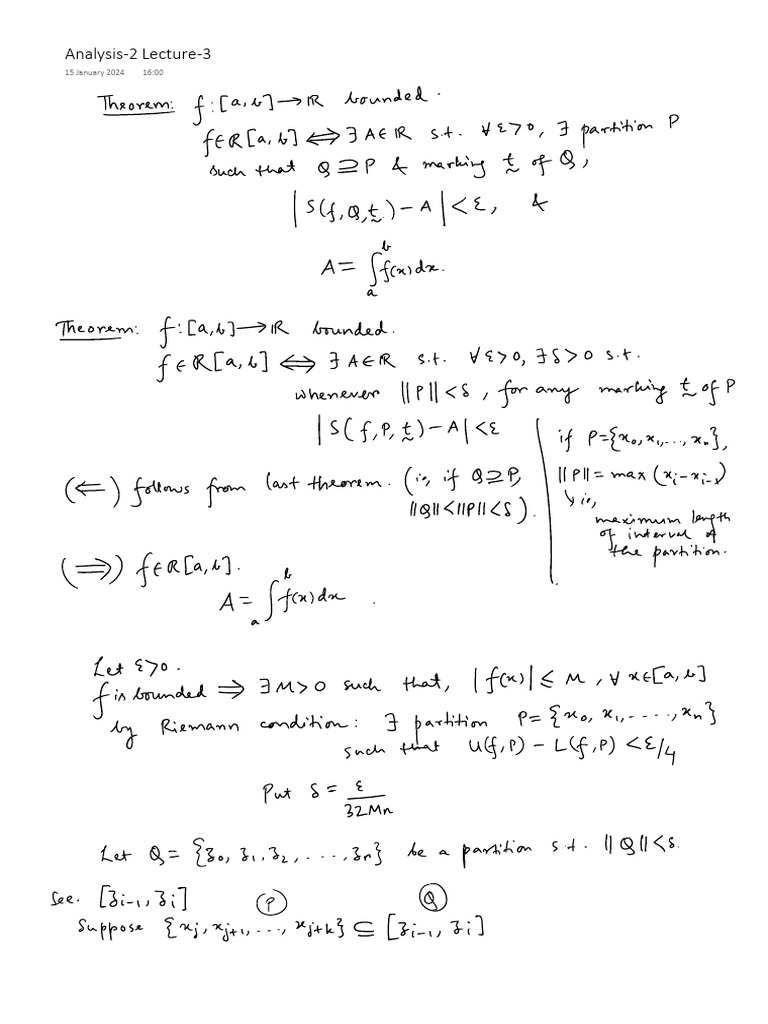 Analysis-2 Lecture-3
15 January 2024 16:00
Theorem: f : [a, b] → ℝ bounded.
f ∈ R[a, b] ⟺ ∃ A ∈ ℝ s.t. ∀ ε > 0, ∃ partition P
such that Q ⊇ P & marking t̰ of Q,
|S(f, Q, t̰) − A| < ε, &
A = ∫_a^b f(x) dx.
Theorem: f : [a, b] → ℝ bounded.
f ∈ R[a, b] ⟺ ∃ A ∈ ℝ s.t. ∀ ε > 0, ∃ δ > 0 s.t.
whenever ||P|| < δ, for any marking t̰ of P
|S(f, P, t̰) − A| < ε
if P = {x₀, x₁, ..., xₙ},
||P|| = max (xᵢ − xᵢ₋₁)
↳ i.e,
maximum length
of interval of
the partition.
(⇐) follows from last theorem. (i.e, if Q ⊇ P,
||Q|| < ||P|| < δ).
(⟹) f ∈ R[a, b].
A = ∫_a^b f(x) dx.
Let ε > 0.
f is bounded ⟹ ∃ M > 0 such that, |f(x)| ≤ M, ∀ x ∈ [a, b]
by Riemann condition: ∃ partition P = {x₀, x₁, ...., xₙ}
such that U(f, P) − L(f, P) < ε/4
Put δ = ε/32Mn
Let Q = {z₀, z₁, z₂, ...., zₙ} be a partition s.t. ||Q|| < δ.
See. [zᵢ₋₁, zᵢ] (P) (Q)
Suppose {xⱼ, xⱼ₊₁, ..., xⱼ₊ₖ} ⊆ [zᵢ₋₁, zᵢ]